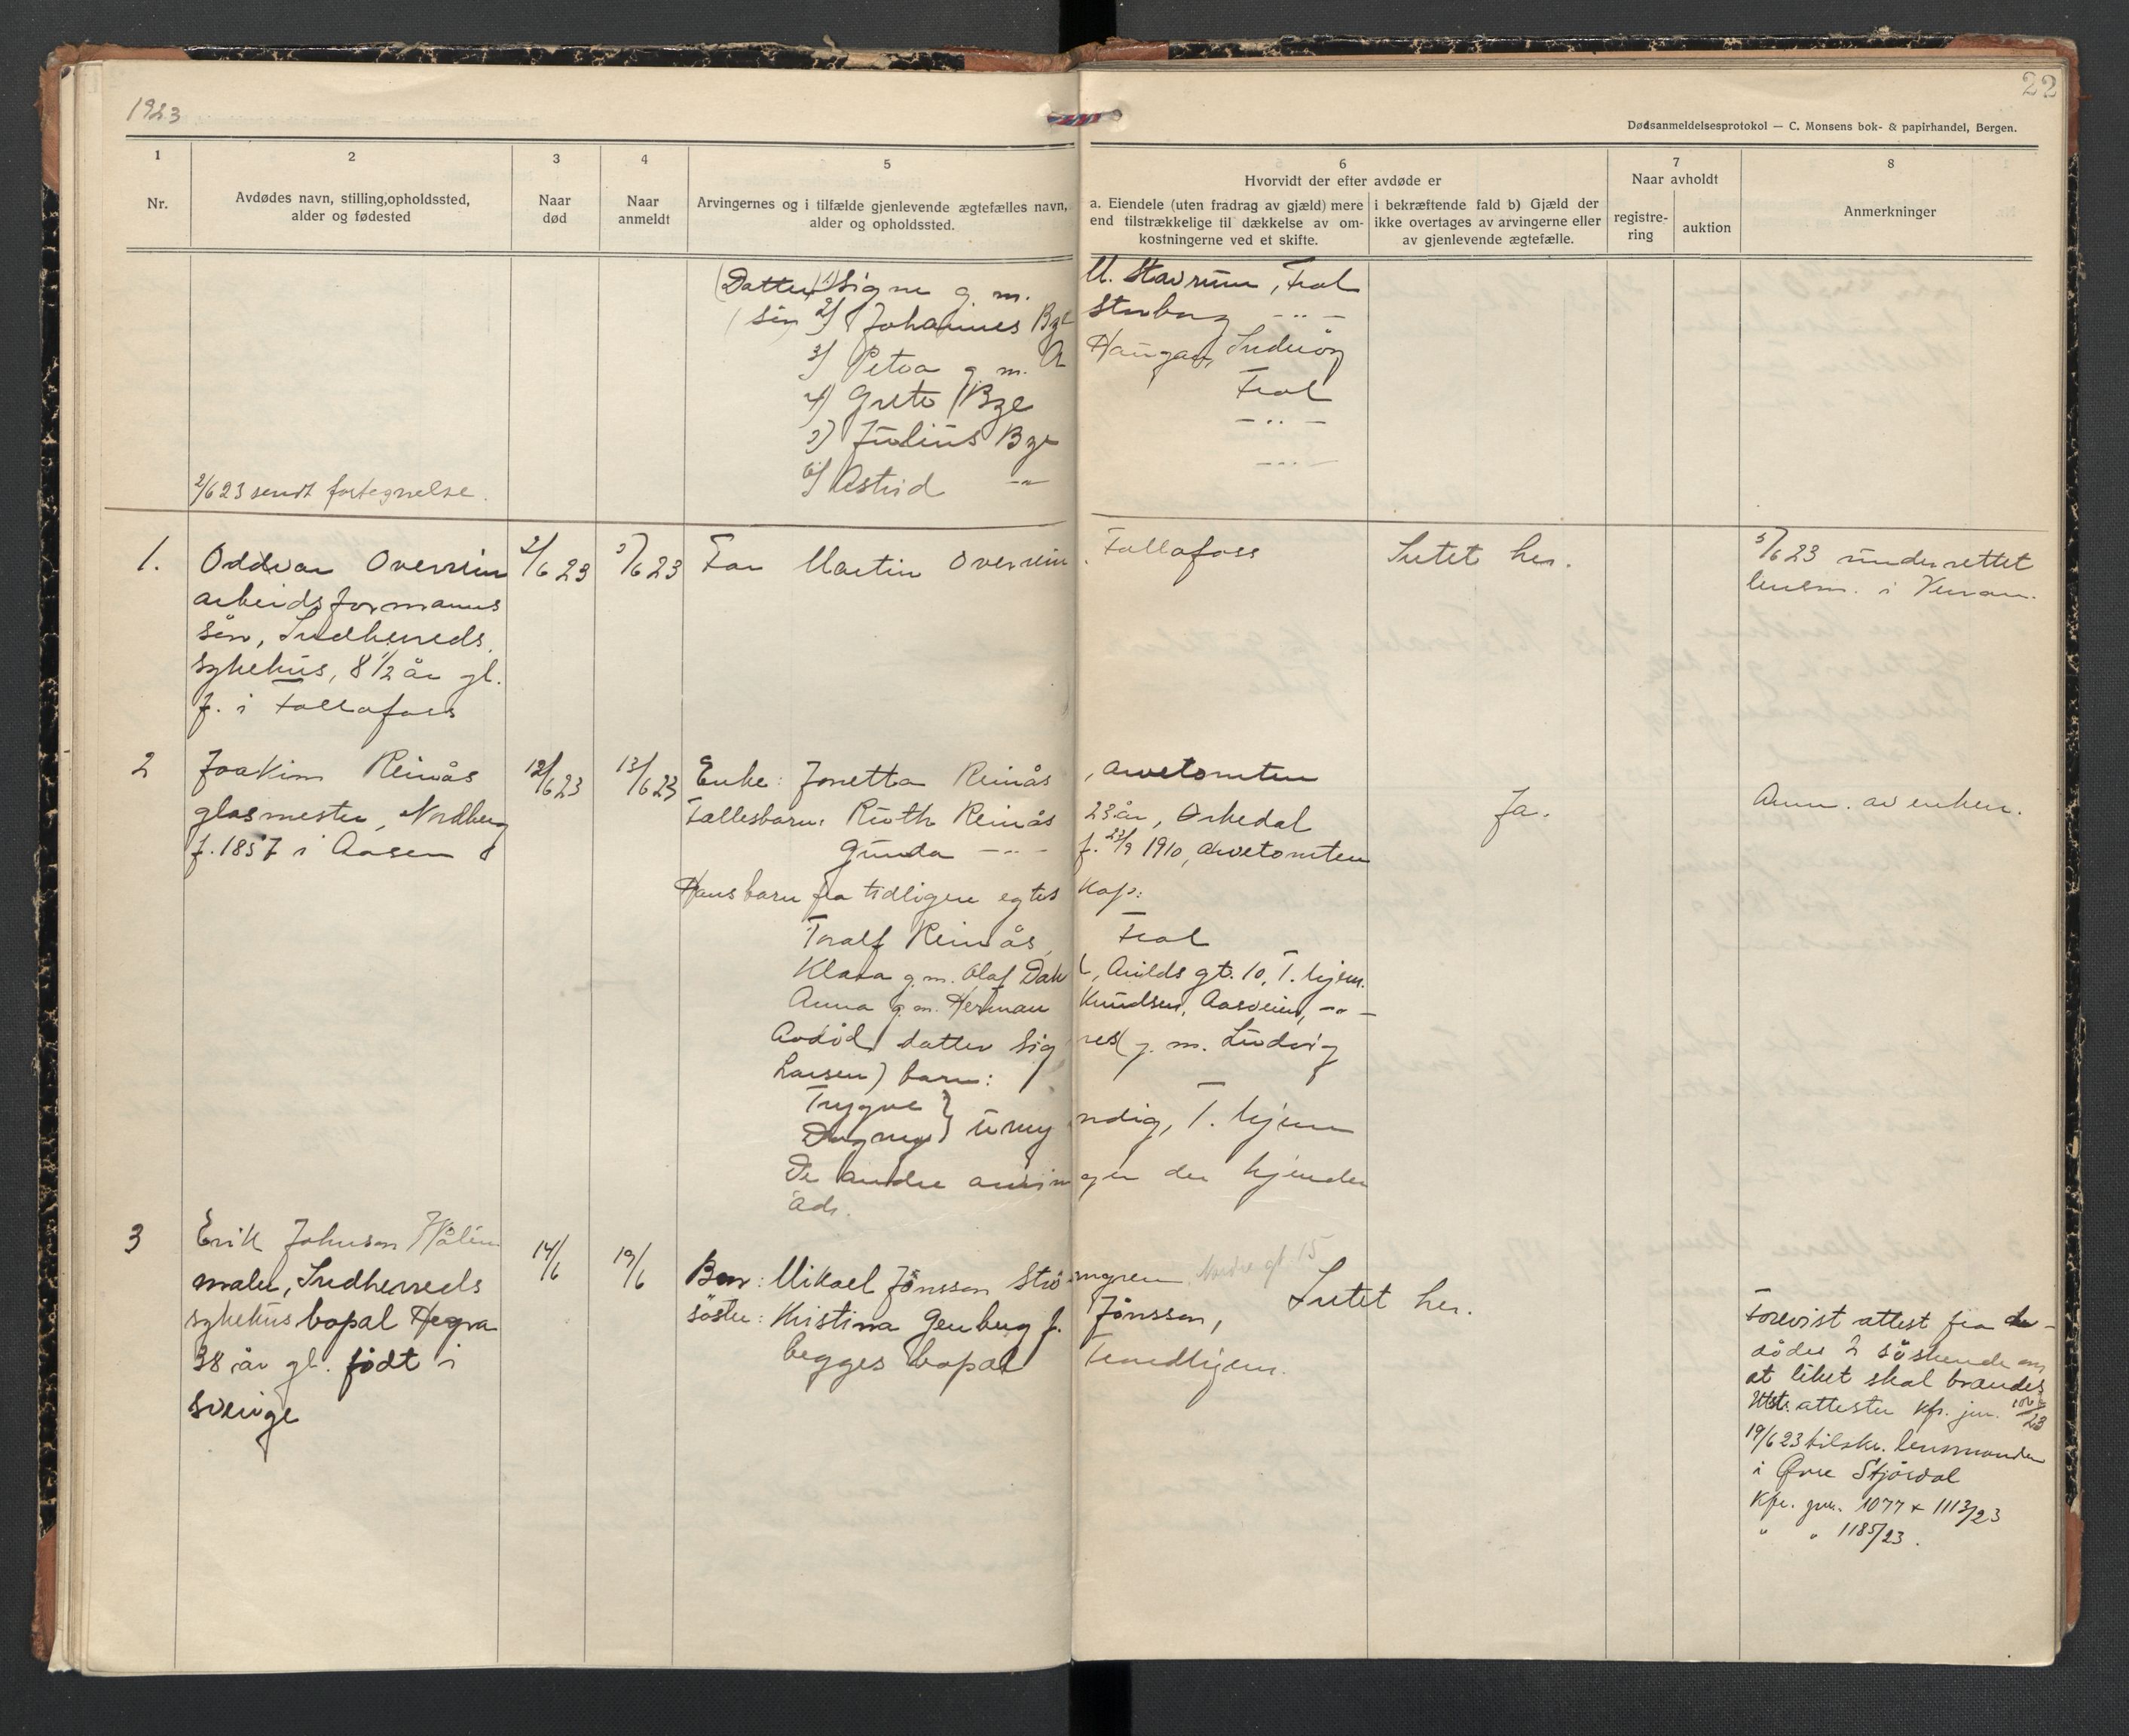 1923
22
Dødsanmeldelsesprotokol — C. Monsens bok- & papirhandel, Bergen.
1
2
3
4
5
6
7
8
Nr.
Avdødes navn, stilling, opholdssted,
alder og fødested
Naar
død
Naar
anmeldt
Arvingernes og i tilfælde gjenlevende ægtefælles navn,
alder og opholdssted.
Hvorvidt der efter avdøde er
a. Eiendele (uten fradrag av gjæld) mere
end tilstrækkelige til dækkelse av om-
kostningerne ved et skifte.
i bekræftende fald b) Gjæld der
ikke overtages av arvingerne eller
av gjenlevende ægtefælle.
Naar avholdt
registre-
ring
auktion
Anmerkninger
(Datter) 1) Signe g. m. M. Stavrum, Frol
(sön 2) Johannes Bye Stenborg -"-
3) Petra g. m. A Haugan, Inderöy
4) Grete Bye Frol
5) Julius Bye -"-
6) Astrid -"- -"-
2/6 23 sendt fortegnelse.
1. Oddvar Overrein 2/6 23 5/6 23 Far Martin Overrein. Follafoss Intet her. 5/6 23 underrettet
arbeidsformanns lensm. i Verran.
sön, Indherreds
sykehus, 8 1/2 år gl.
f. i Follafoss
2 Joakim Reinås 12/6 23 13/6 23 Enke: Jonetta Reinås, Arvetomten
glasmester, Nordberg Fællesbarn: Ruth Reinås 23 år, Orkedal Ja. Anm. av enken.
f. 1857 i Aasen Gunda -"- f. 23/9 1910, Arvetomten
Hans barn fra tidligere egteskap:
Toralf Reinås, Frol
Klara g. m. Olaf Dahl, gt. 10, T. hjem.
Anna g. m. Herman Knudsen, Aasveien, -"-
Avdöd datter Sig g. m. Ludvig
Larsen) barn:
Trygve }
Dagny } umyndig, T. hjem
De andre arvinger der kjender
adr.
3 Erik Johnson Målin 14/6 19/6 Bror: Mikael Jönsson Strömgren, Nordre gt 15 Intet her.
maler, Indherreds söster: Kristina Genberg f. Jönsson,
sykehus bopal Hegra begges bopal Trondhjem.
38 år gl. født i
Sverige
Forevist attest fra de
dödes 2 söskende om
at liket skal brændes
Utst. attester kfr. jnr.
19/6 23 tilskr. lensmanden
i Øvre Stjørdal
Kfr. jnr. 1077 + 1113/23
" " 1185/23.